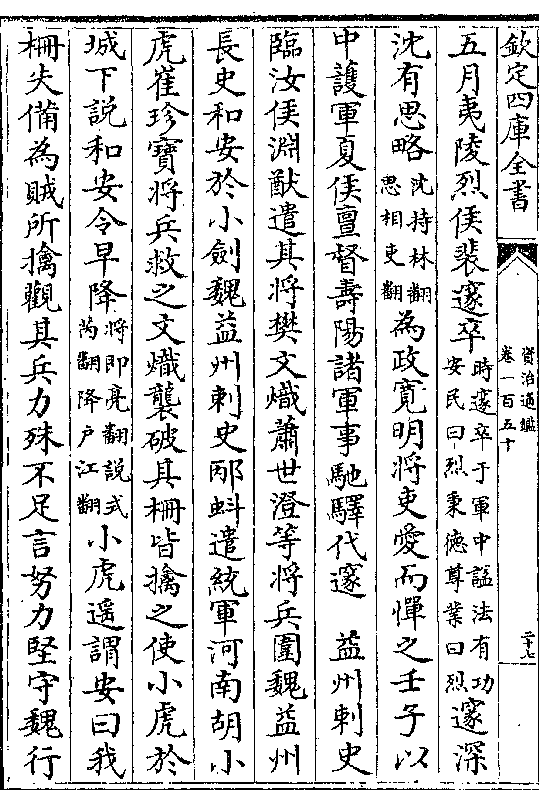 欽定四庫全書
資治通鑑
卷一百五十
二十七
五月夷陵烈侯裴邃卒時邃卒于軍中諡法有功安民曰烈秉德尊業曰烈邃深
沈有思略沈持林翻思相吏翻為政寛明將吏愛而憚之壬子以
中護軍夏侯亶督壽陽諸軍事馳驛代邃　益州刺史
臨汝侯淵猷遣其將樊文熾蕭世澄等將兵圍魏益州
長史和安於小劍魏益州刺史邴虯遣統軍河南胡小
虎崔珍寶將兵救之文熾襲破其柵皆擒之使小虎於
城下説和安令早降將即亮翻説式芮翻降户江翻小虎遥謂安曰我
柵失備為賊所擒觀其兵力殊不足言努力堅守魏行